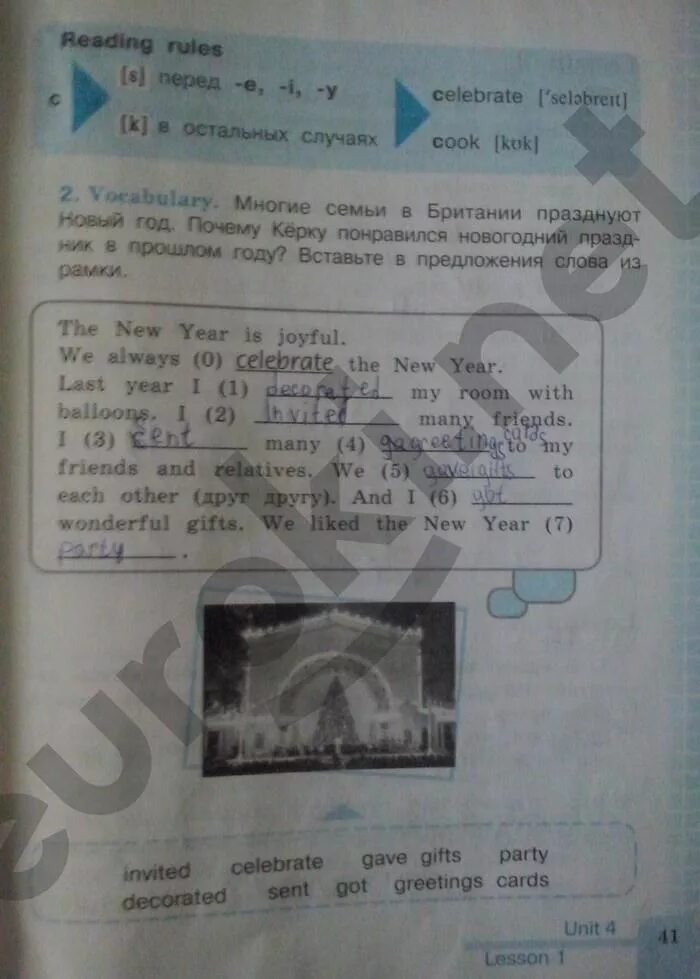 Reading rules
c
[s] перед -e, -i, -y
celebrate ['seləbreɪt]
[k] в остальных случаях
cook [kʊk]
2. Vocabulary. Многие семьи в Британии празднуют
Новый год. Почему Кёрку понравился новогодний празд-
ник в прошлом году? Вставьте в предложения слова из
рамки.
The New Year is joyful.
We always (0) celebrate the New Year.
Last year I (1) decorated my room with
balloons. I (2) invited many friends.
I (3) sent many (4) greetings cards to my
friends and relatives. We (5) gave gifts to
each other (друг другу). And I (6) got
wonderful gifts. We liked the New Year (7)
party.
invited celebrate gave gifts party
decorated sent got greetings cards
Unit 4
Lesson 1
41
euroki.net